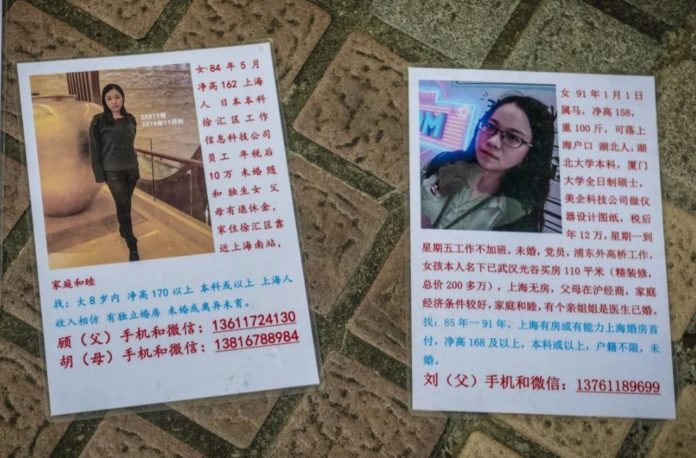 女 84 年 5 月
净高 162 上海
人 日本本科
徐汇区工作
信息科技公司
员工 年税后
10 万 未婚 随
和 独生女 父
母有退休金，
家住徐汇区靠
近上海南站，
家庭和睦
找：大 8 岁内 净高 170 以上 本科或以上 上海人
收入相仿 有独立婚房 未婚或离异未育。
顾（父）手机和微信：13611724130
胡（母）手机和微信：13816788984
女 91 年 1 月 1 日
属马，净高 158，
重 100 斤，可落上
海户口 湖北人，湖
北大学本科，厦门
大学全日制硕士，
美企科技公司做仪
器设计图纸，税后
年 12 万，星期一到
星期五工作不加班，未婚，党员，浦东外高桥工作，
女孩本人名下已武汉光谷买房 110 平米（精装修，
总价 200 多万），上海无房，父母在沪经商，家庭
经济条件较好，家庭和睦，有个亲姐姐是医生已婚，
找：85 年一 91 年，上海有房或有能力上海婚房首
付，净高 168 及以上，本科或以上，户籍不限，未
婚。
刘（父）手机和微信：13761189699